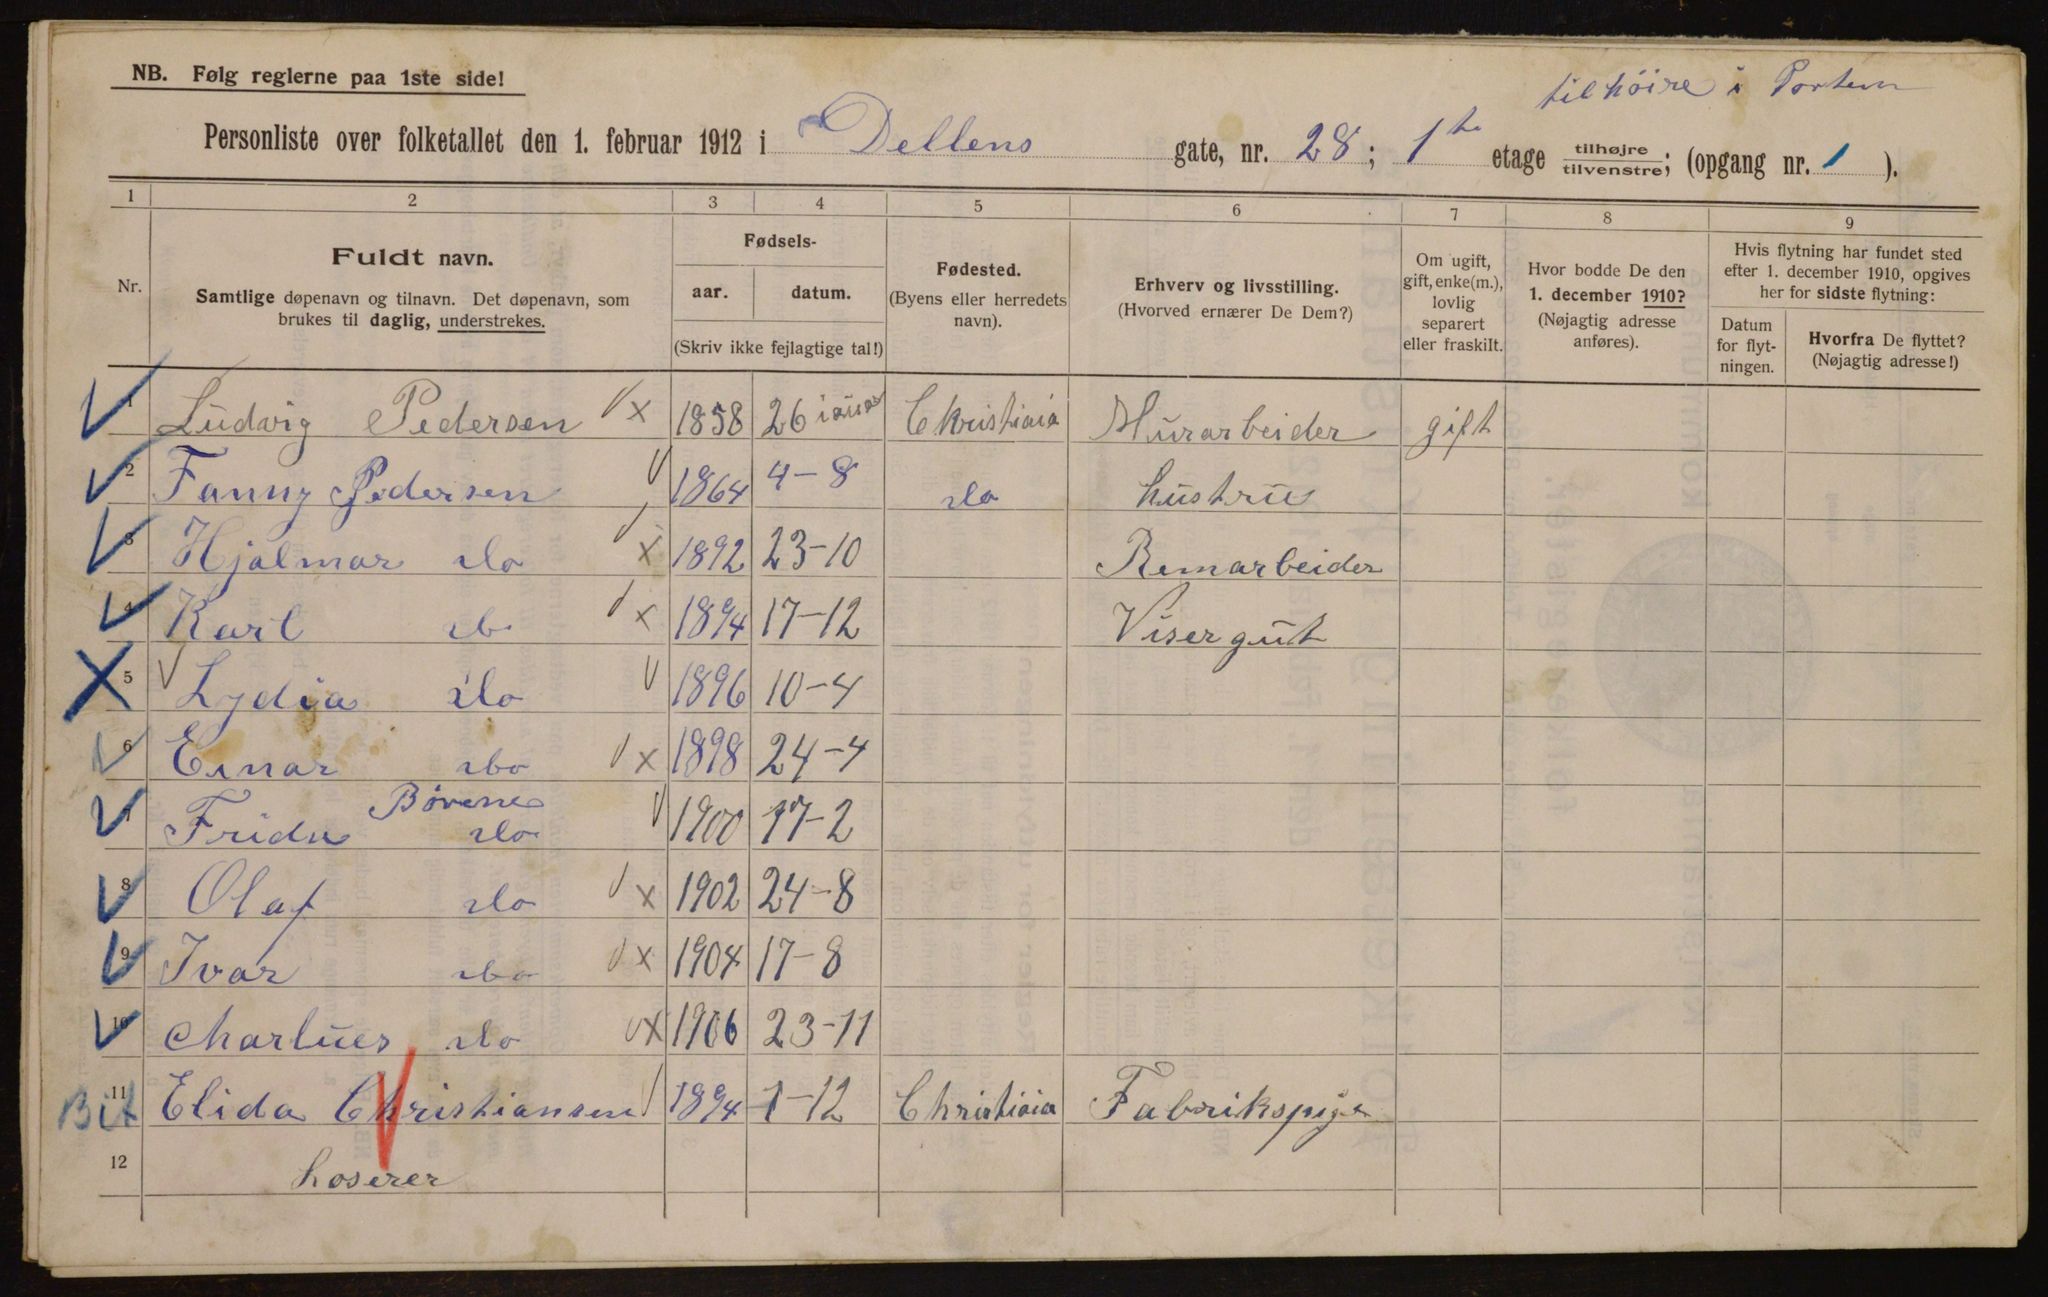 NB. Følg reglerne paa 1ste side!
tilhöire i Porten
Personliste over folketallet den 1. februar 1912 i Dellens gate, nr. 28; 1te etage tilhøjre/tilvenstre; (opgang nr. 1).
1 2 3 4 5 6 7 8 9
Nr.
Fuldt navn.
Samtlige døpenavn og tilnavn. Det døpenavn, som
brukes til daglig, understrekes.
Fødsels-
aar. datum.
(Skriv ikke fejlagtige tal!)
Fødested.
(Byens eller herredets
navn).
Erhverv og livsstilling.
(Hvorved ernærer De Dem?)
Om ugift,
gift, enke(m.),
lovlig
separert
eller fraskilt.
Hvor bodde De den
1. december 1910?
(Nøjagtig adresse
anføres).
Hvis flytning har fundet sted
efter 1. december 1910, opgives
her for sidste flytning:
Datum
for flyt-
ningen.
Hvorfra De flyttet?
(Nøjagtig adresse!)
1 Ludvig Pedersen x 1858 26 Christiaia Murarbeider gift
2 Fanny Pedersen 1864 4-8 do hustru
3 Hjalmar do x 1892 23-10 Remarbeider
4 Karl do x 1894 17-12 Visergut
5 Lydia do 1896 10-4
6 Einar do x 1898 24-4
Børene
7 Frida do 1900 17-2
8 Olaf do x 1902 24-8
9 Ivar do x 1904 17-8
10 Marlues do x 1906 23-11
11 Elida Christiansen 1894 1-12 Christiaia Fabrikspige
12 Loserer